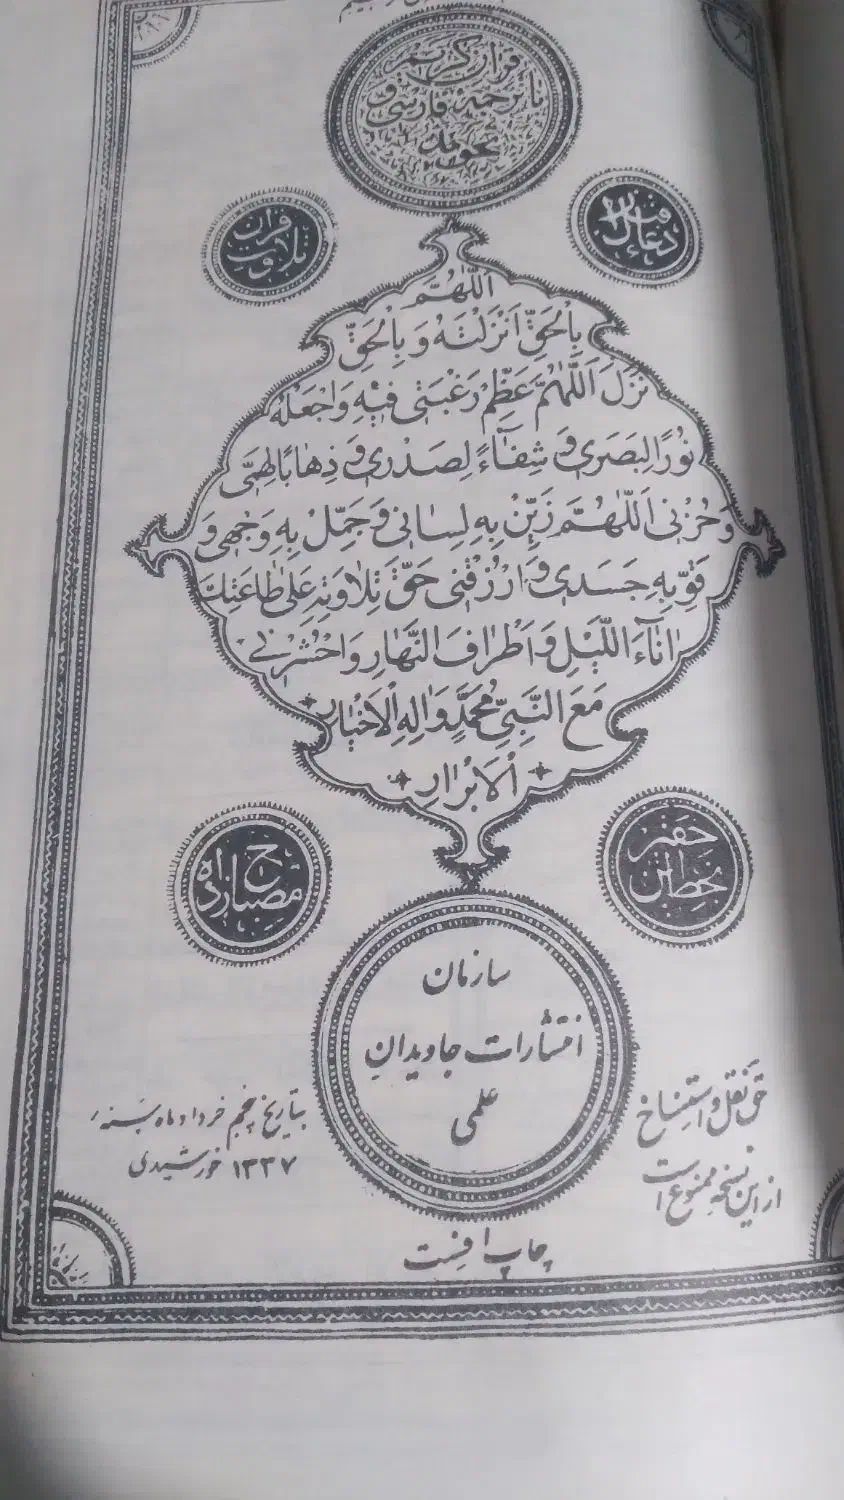 قرآن کریم
با ترجمهٔ فارسی و
تجوید
دعای قبل از
تلاوت قرآن
اَللّٰهُمَّ
بِالْحَقِّ اَنْزَلْتَهُ وَ بِالْحَقِّ
نَزَلَ اَللّٰهُمَّ عَظِّمْ رَغْبَتی فیهِ وَاجْعَلْهُ
نُورًا لِبَصَری وَ شِفٰآءً لِصَدْری وَ ذِهٰابًا لِهَمّی
وَ حُزْنی اَللّٰهُمَّ زَیِّنْ بِهِ لِسٰانی وَ جَمِّلْ بِهِ وَجْهی وَ
قَوِّ بِهِ جَسَدی وَ ارْزُقْنی حَقَّ تِلٰاوَتِهِ عَلیٰ طٰاعَتِكَ
اٰنٰآءَ اللَّیْلِ وَ اَطْرٰافَ النَّهٰارِ وَاحْشُرْنی
مَعَ النَّبِیِّ مُحَمَّدٍ وَ اٰلِهِ الْاَخْیٰارِ
الْاَبْرٰارِ
بخط این حقیر
ح مصباح زاده
سازمان
انتشارات جاویدان
علمی
حق نقل و استنساخ
از این نسخه ممنوع است
بتاریخ پنجم خرداد ماه سنه
۱۳۳۷ خورشیدی
چاپ افست